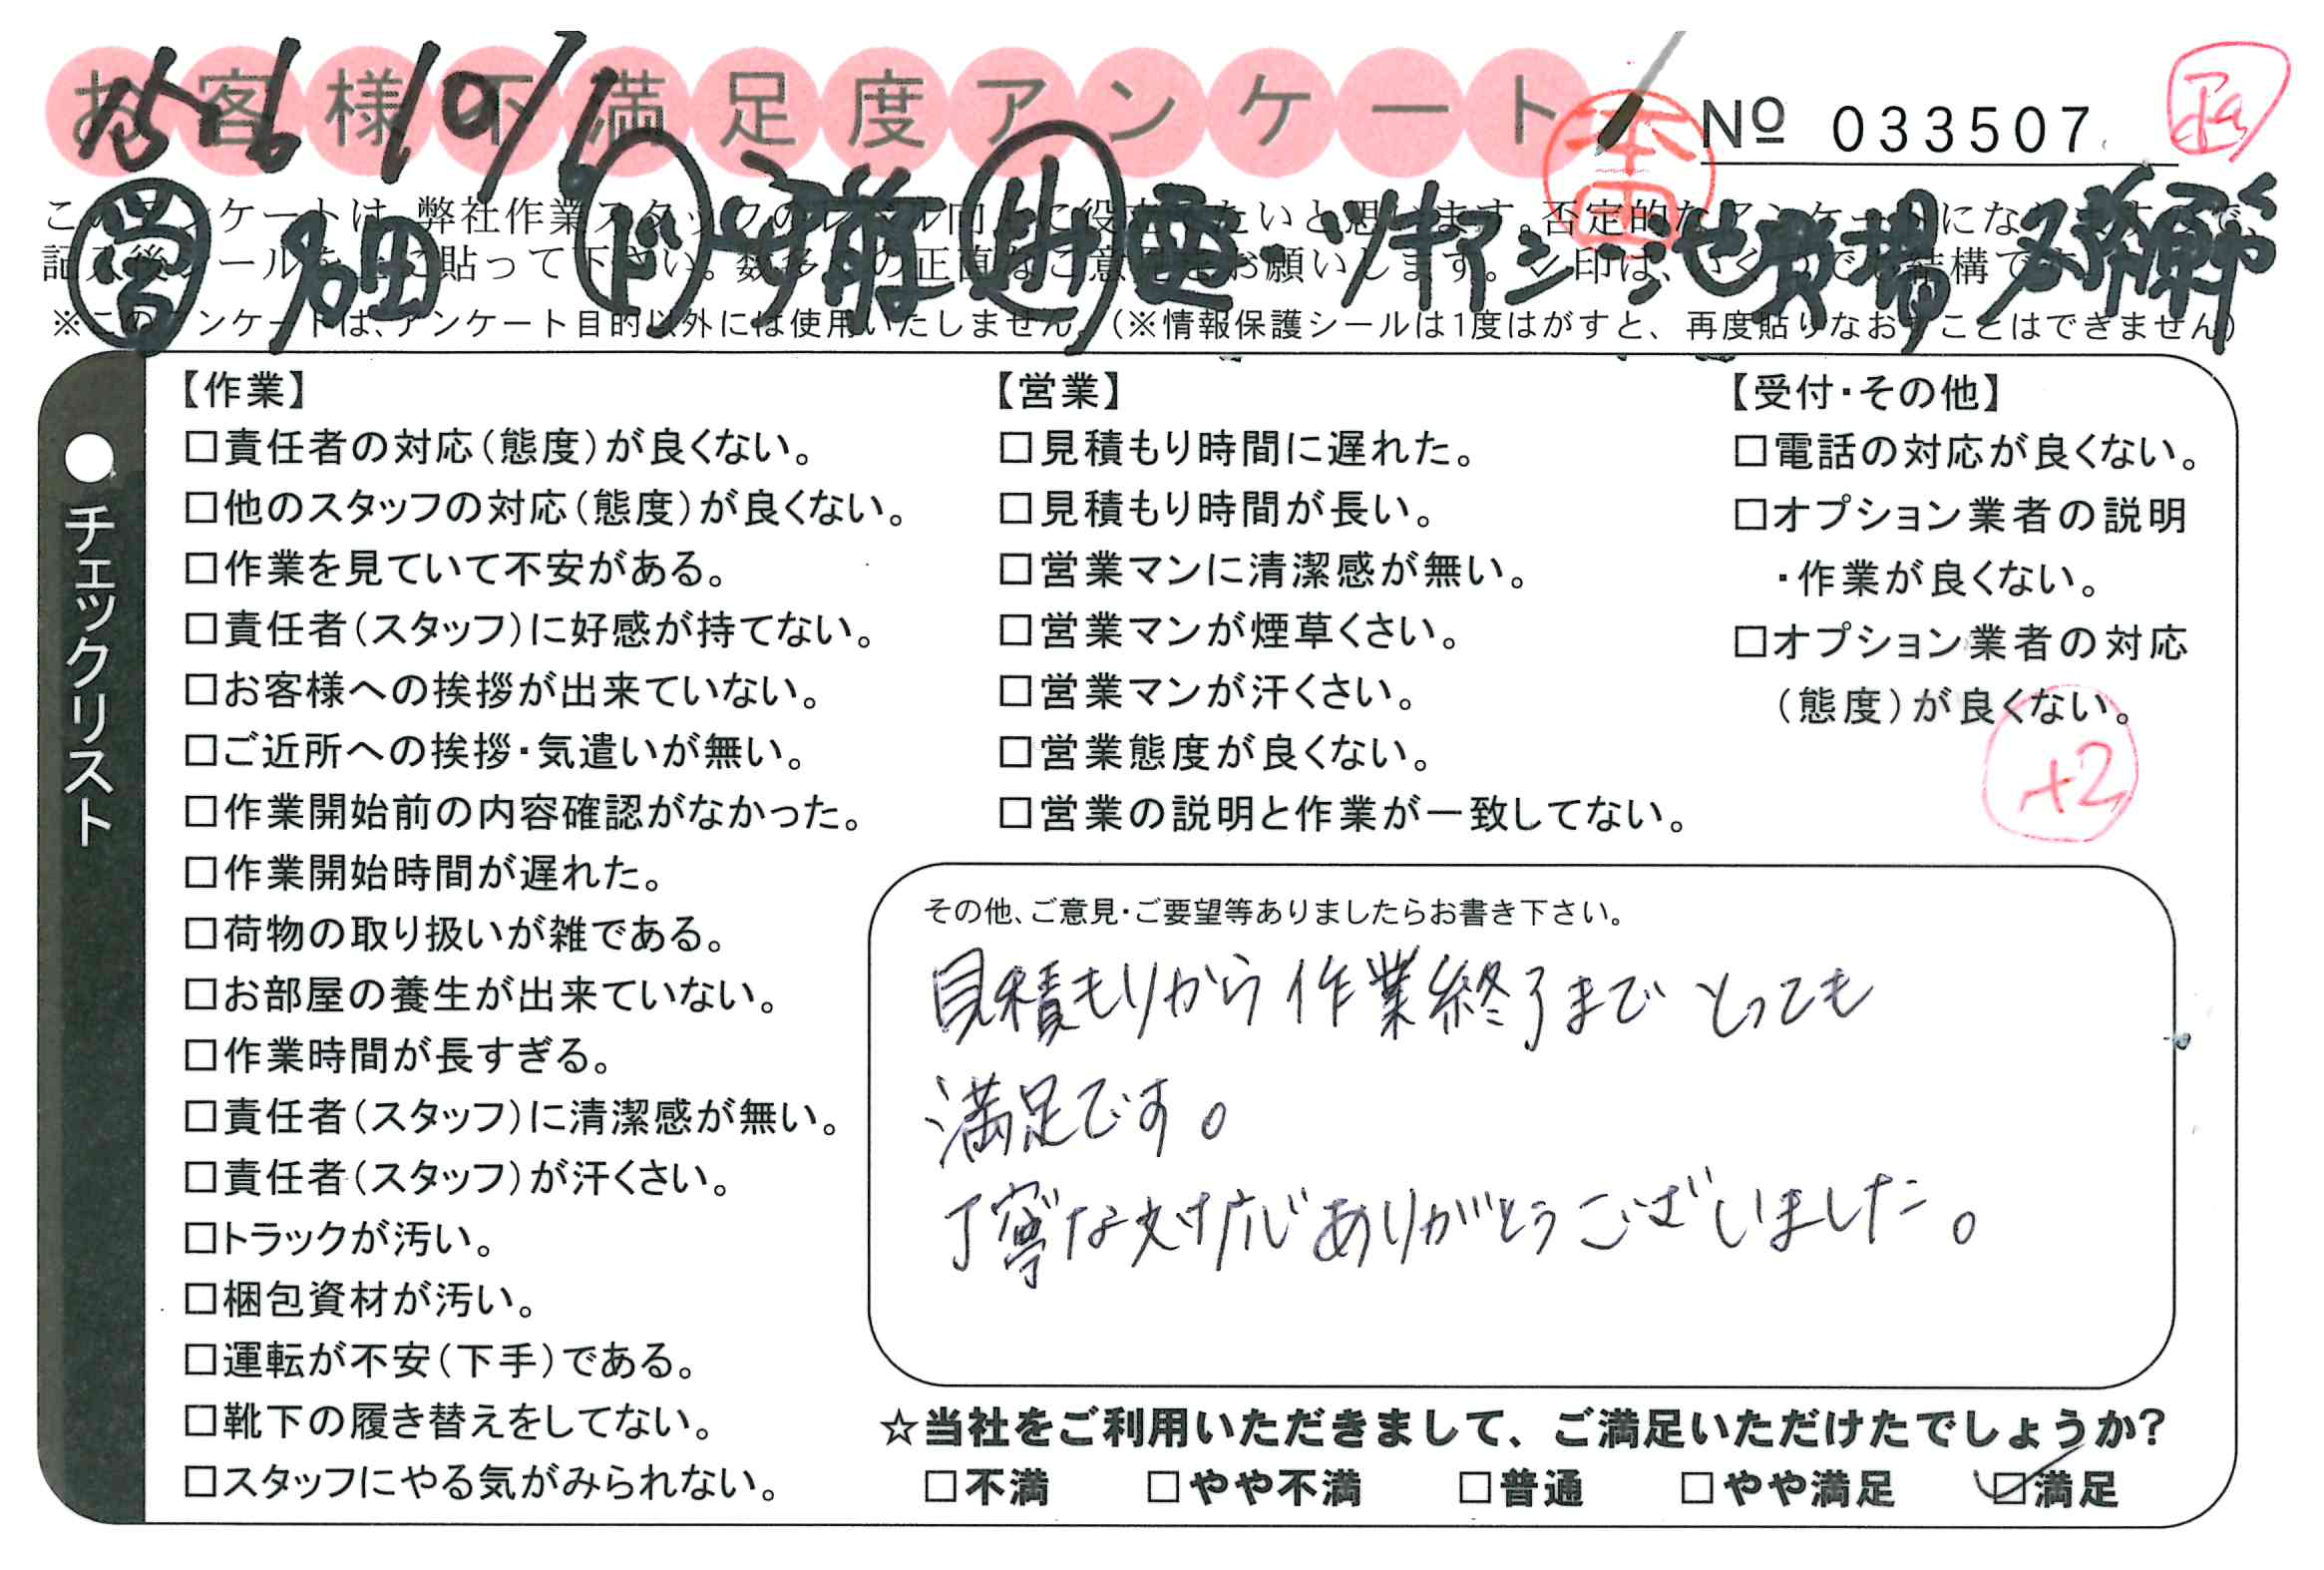 お客様不満足度アンケート
№ 033507
10/1
この
記入後
※このアンケートは、アンケート目的以外には使用いたしません。(※情報保護シールは1度はがすと、再度貼りなおすことはできません)
●チェックリスト
【作業】
□責任者の対応(態度)が良くない。
□他のスタッフの対応(態度)が良くない。
□作業を見ていて不安がある。
□責任者(スタッフ)に好感が持てない。
□お客様への挨拶が出来ていない。
□ご近所への挨拶・気遣いが無い。
□作業開始前の内容確認がなかった。
□作業開始時間が遅れた。
□荷物の取り扱いが雑である。
□お部屋の養生が出来ていない。
□作業時間が長すぎる。
□責任者(スタッフ)に清潔感が無い。
□責任者(スタッフ)が汗くさい。
□トラックが汚い。
□梱包資材が汚い。
□運転が不安(下手)である。
□靴下の履き替えをしてない。
□スタッフにやる気がみられない。
【営業】
□見積もり時間に遅れた。
□見積もり時間が長い。
□営業マンに清潔感が無い。
□営業マンが煙草くさい。
□営業マンが汗くさい。
□営業態度が良くない。
□営業の説明と作業が一致してない。
【受付・その他】
□電話の対応が良くない。
□オプション業者の説明
・作業が良くない。
□オプション業者の対応
(態度)が良くない。
+2
その他、ご意見・ご要望等ありましたらお書き下さい。
見積もりから作業終了まで とっても
満足です。
丁寧な対応ありがとうございました。
☆当社をご利用いただきまして、ご満足いただけたでしょうか?
□不満 □やや不満 □普通 □やや満足 ☑満足